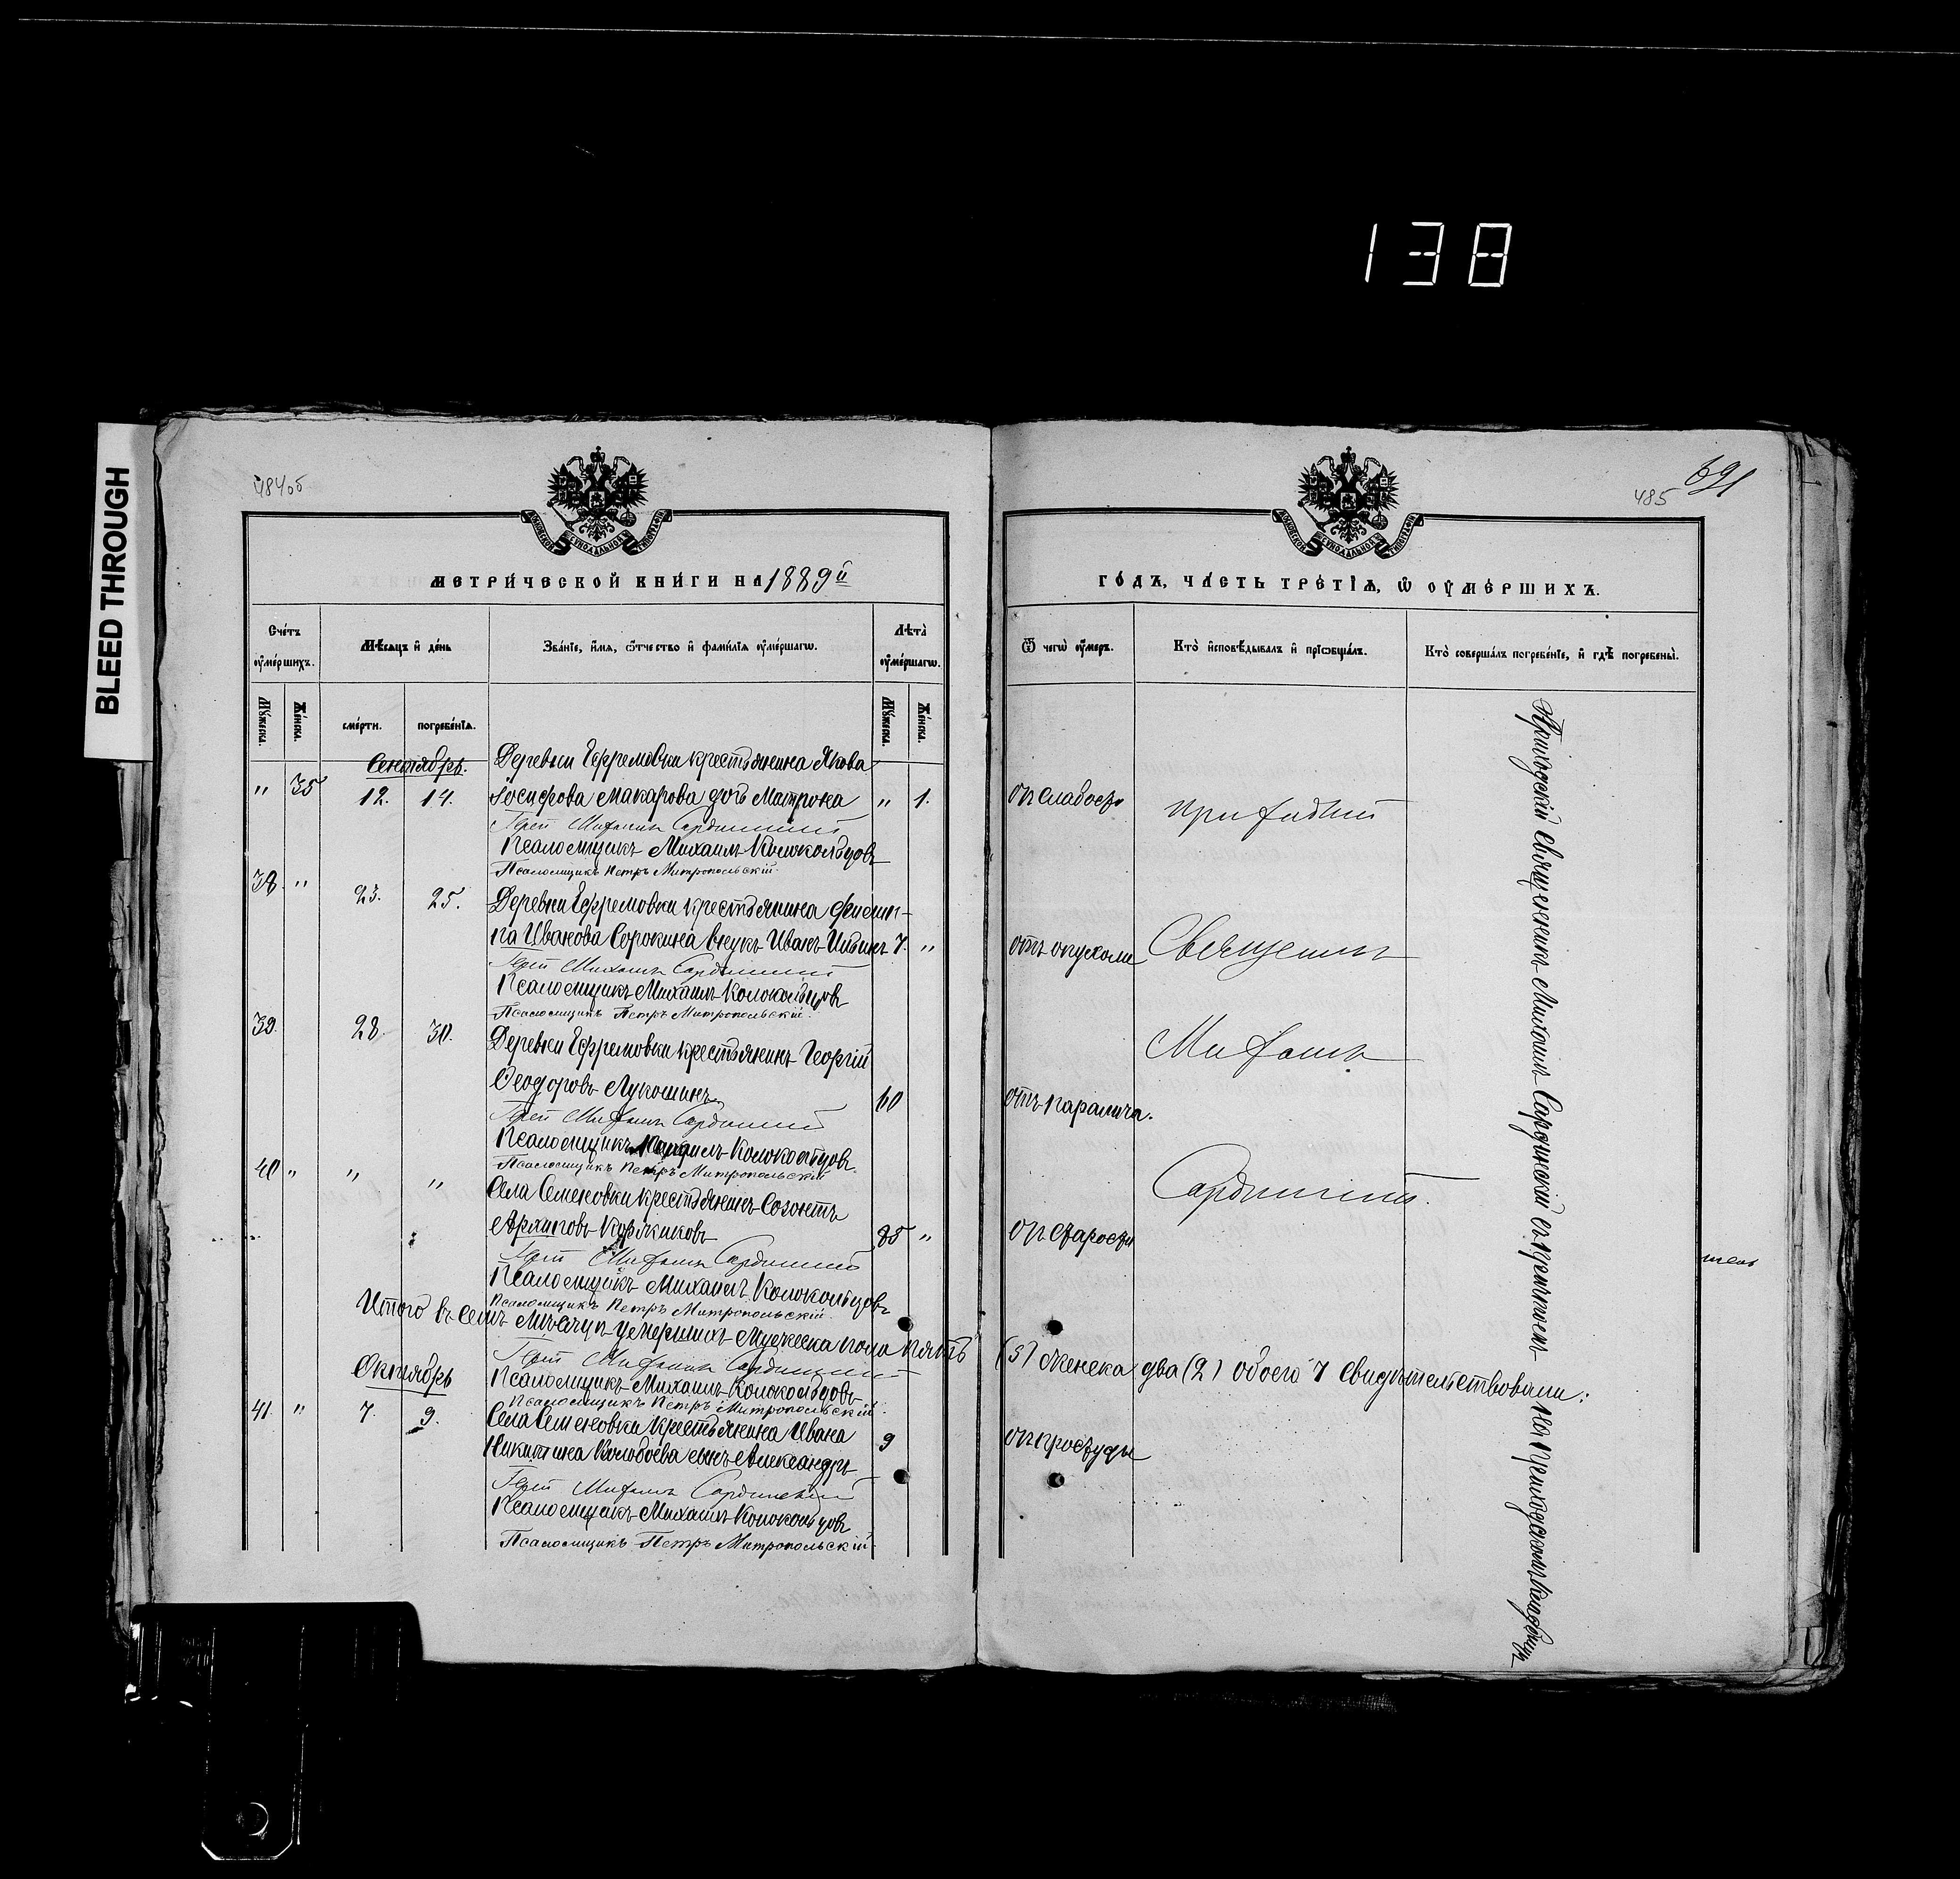 138
BLEED THROUGH
484об
485
691
МЕТРИЧЕСКОЙ КНИГИ НА 1889й
ГОДЪ, ЧАСТЬ ТРЕТІЯ, Ѿ ОУМЕРШИХЪ.
Счетъ оумершихъ.
Мѣсяцъ и день
Званіе, имя, ѿчество и фамилія оумершагѡ.
Лѣта оумершагѡ.
Ѿ чегѡ оумеръ.
Кто исповѣдывалъ и пріѡбщалъ.
Кто совершалъ погребеніе, и гдѣ погребены.
Мужеска.
Женска.
смерти.
погребенія.
Мужеска.
Женска.
Сентябрь.
Деревни Ефремовки крестьянина Якова
" 35 12. 14. Іосифова Макарова дочь Матрона " 1. отъ слабости
Іерей Михаилъ Сардинскій
Псаломщикъ Михаилъ Колокольцовъ
Псаломщикъ Петръ Митропольскій
38. " 23. 25. Деревни Ефремовки крестьянина Филип-
па Иванова Сорокина внукъ Иванъ 7. " отъ опухоли
Іерей Михаилъ Сардинскій
Псаломщикъ Михаилъ Колокольцовъ
Псаломщикъ Петръ Митропольскій.
39. 28. 30. Деревни Ефремовки крестьянинъ Георгій
Ѳеодоровъ Лукошинъ 60 отъ паралича.
Іерей Михаилъ Сардинскій
Псаломщикъ Михаилъ Колокольцовъ.
Псаломщикъ Петръ Митропольскій
40 " " " Села Семеновки крестьянинъ Созонтъ
Архиповъ Коржиковъ 85 " отъ старости
Іерей Михаилъ Сардинскій
Псаломщикъ Михаилъ Колокольцовъ
Псаломщикъ Петръ Митропольскій.
Итого въ семъ мѣсяцѣ умершихъ мужеска пола пять (5) женска два (2) обоего 7 свидѣтельствовали:
Іерей Михаилъ Сардинскій
Октябрь
Псаломщикъ Михаилъ Колокольцовъ
Псаломщикъ Петръ Митропольскій.
41. " 7. 9. Села Семеновки крестьянина Ивана 9 отъ простуды
Никитина сынъ Александръ
Іерей Михаилъ Сардинскій
Псаломщикъ Михаилъ Колокольцовъ
Псаломщикъ Петръ Митропольскій
Священникъ
Михаилъ
Сардинскій.
Приходскій священникъ Михаилъ Сардинскій съ причтомъ на приходскомъ кладбищѣ